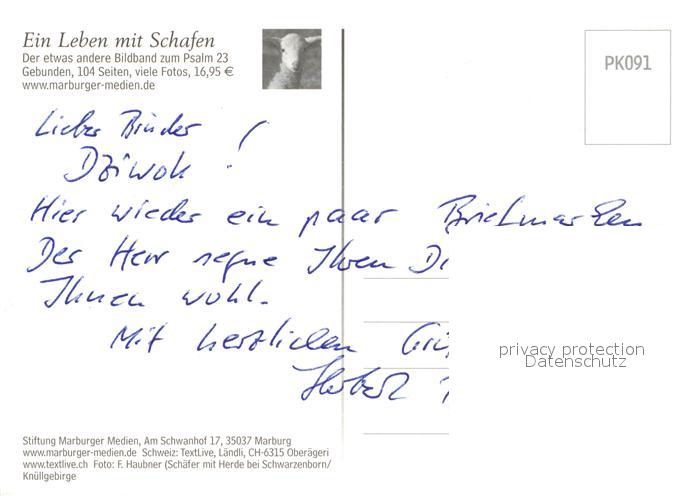 Ein Leben mit Schafen
Der etwas andere Bildband zum Psalm 23
Gebunden, 104 Seiten, viele Fotos, 16,95 €
www.marburger-medien.de
PK091
Lieber Bruder
Dziwok !
Hier wieder ein paar Briefmarken
Der Herr segne Ihren Di
Ihnen wohl.
Mit herzlichen Grü
Herbert
privacy protection
Datenschutz
Stiftung Marburger Medien, Am Schwanhof 17, 35037 Marburg
www.marburger-medien.de Schweiz: TextLive, Ländli, CH-6315 Oberägeri
www.textlive.ch Foto: F. Haubner (Schäfer mit Herde bei Schwarzenborn/
Knüllgebirge